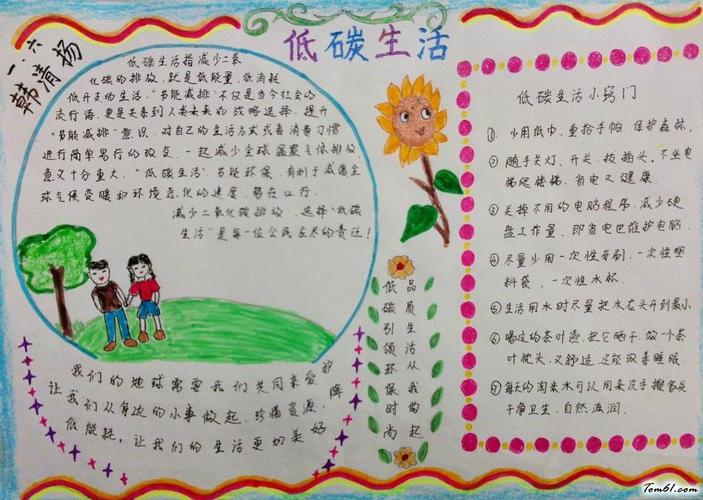 一.六
韩清扬
低碳生活
低碳生活指减少二氧
化碳的排放，就是低能量，低消耗，
低开支的生活。"节能减排"不仅是当今社会的
流行语，更是关系到人类未来的战略选择。提升
"节能减排"意识，对自己的生活方式或者消费习惯
进行简单易行的改变，一起减少全球温室气体排放，
意义十分重大。"低碳生活"节能环保，有利于减缓全
球气候变暖和环境恶化的速度，势在必行。
减少二氧化碳排放，选择"低碳
生活"是每一位公民应尽的责任！
我们的地球需要我们共同来爱护
让我们从身边的小事做起，珍惜资源，降
低能耗，让我们的生活更加美好
低碳引领环保时尚
品质生活从我的起
低碳生活小窍门
① 少用纸巾，重拾手帕，保护森林。
② 随手关灯、开关、拔插头，不坐电
梯爬楼梯，省电又健康。
③ 关掉不用的电脑程序，减少硬
盘工作量，即省电也维护电脑。
④ 尽量少用一次性牙刷，一次性塑
料袋，一次性水杯。
⑤ 生活用水时尽量把水龙头开到最小
⑥ 喝过的茶叶渣，把它晒干，做一个茶
叶枕头，又舒适，还能改善睡眠。
⑦ 每天的淘米水可以用来洗手擦家具
干净卫生，自然滋润。
Tom61.com